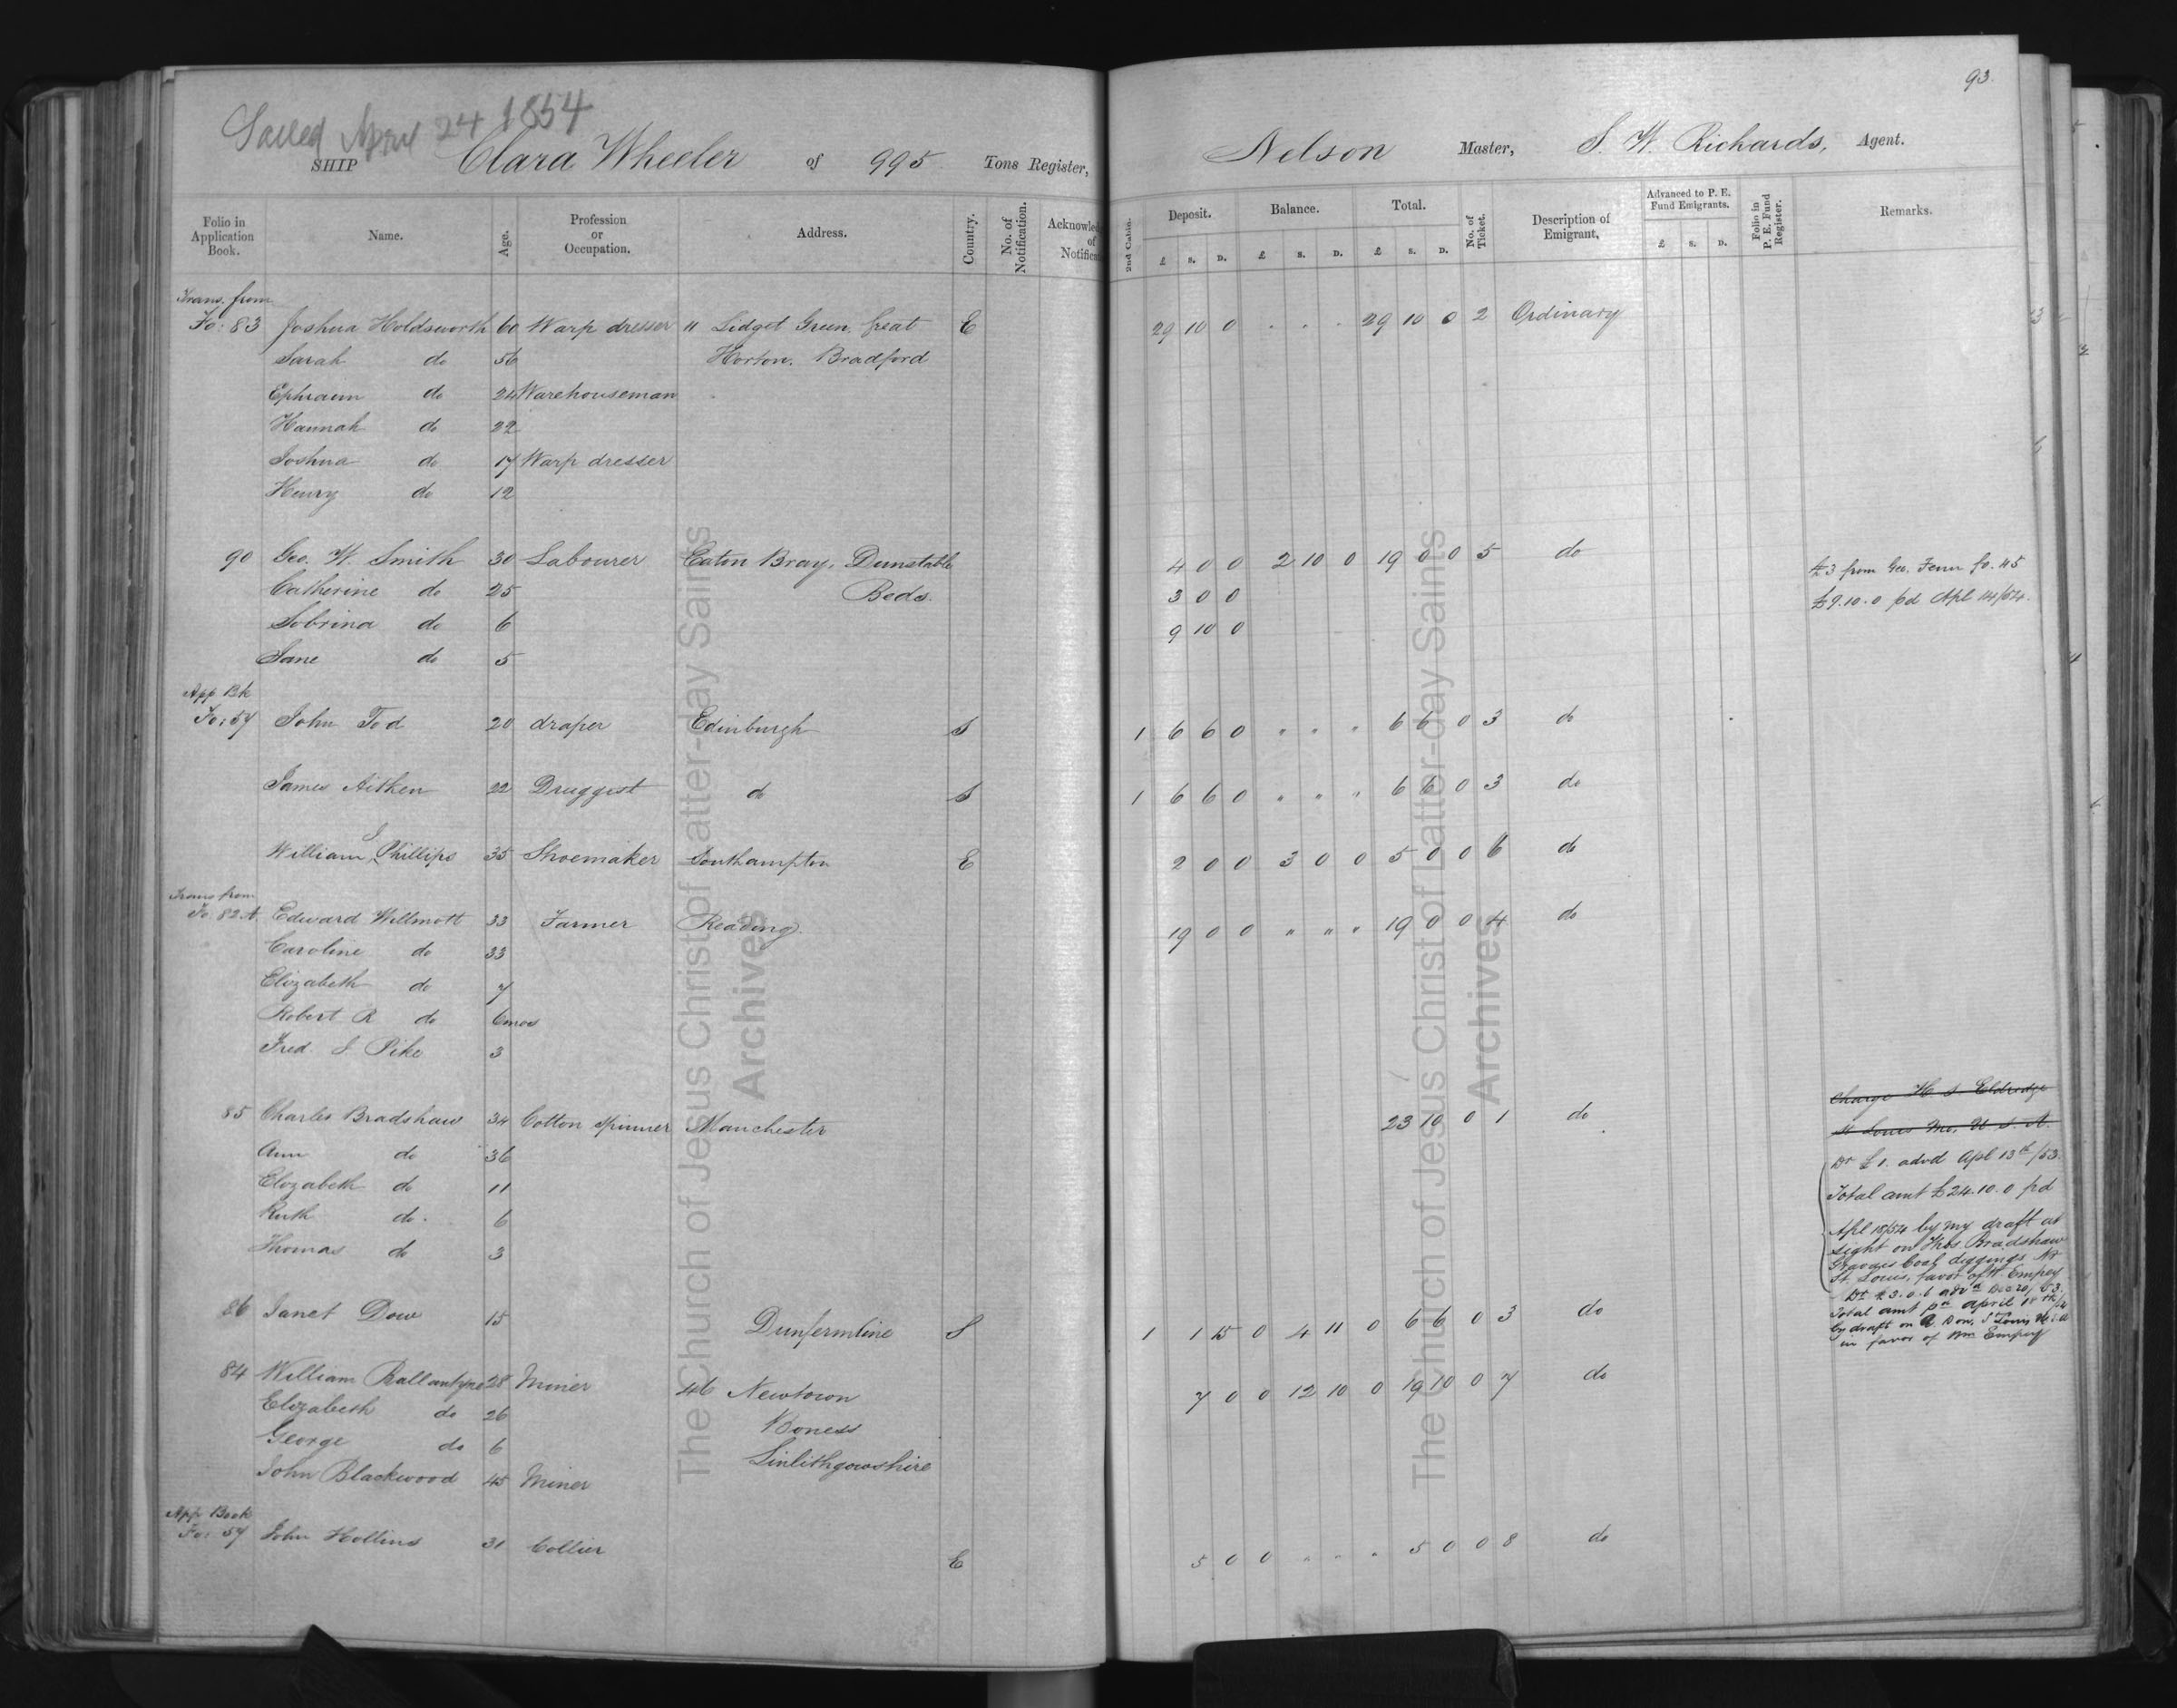 93.
Sailed April 24 1854
SHIP Clara Wheeler of 995 Tons Register, Nelson Master, S. W. Richards, Agent.
Folio in Application Book. Name. Age. Profession or Occupation. Address. Country. No. of Notification. Acknowled of Notifica 2nd Cabin. Deposit. Balance. Total. No. of Ticket. Description of Emigrant. Advanced to P. E. Fund Emigrants. Folio in P. E. Fund Register. Remarks.
£ S. D. £ S. D. £ S. D. £ S. D.
Trans. from
Fo: 83 Joshua Holdsworth 60 Warp dresser " Lidget Green, Great E 29 10 0 " " " 29 10 0 2 Ordinary
Sarah do 56 Horton. Bradford
Ephraim do 24 Warehouseman
Hannah do 22
Joshua do 17 Warp dresser
Henry do 12
90 Geo. W. Smith 30 Labourer Eaton Bray, Dunstable 4 0 0 2 10 0 19 0 0 5 do £3 from Geo. Fenn fo. 45
Catherine do 25 Beds. 3 0 0 £9.10.0 pd Apl 14/54.
Sobrina do 6 9 10 0
Jane do 5
App Bk
Fo: 57 John Tod 20 draper Edinburgh S 1 6 6 0 " " " 6 6 0 3 do
James Aitken 22 Druggist do S 1 6 6 0 " " " 6 6 0 3 do
William J Phillips 35 Shoemaker Southampton E 2 0 0 3 0 0 5 0 0 6 do
Trans from
Fo. 82 A. Edward Willmott 33 Farmer Reading. 19 0 0 " " " 19 0 0 4 do
Caroline do 33
Elizabeth do 7
Robert R do 6 mos
Fred. S Pike 3
Charge H S Eldredge
85 Charles Bradshaw 34 Cotton Spinner Manchester 23 10 0 1 do St Louis Mo, U S A.
Ann do 36 Dr £1. advd Apl 13th/53.
Elizabeth do 11 Total amt £24.10.0 pd
Ruth do. 6 Apl 18/54 by my draft at
Thomas do 3 sight on Bradshaw
Coal diggings Nr
St Louis, favor of W Empey
Dr £3.0.6 advd Dec 20/53.
86 Janet Dow 15 Dunfermline S 1 1 15 0 4 11 0 6 6 0 3 do Total amt pd april 18th/54
by draft on R. Dow, St Louis
in favor of Wm Empey
84 William Ballantyne 28 Miner 46 Newtown 7 0 0 12 10 0 19 10 0 7 do
Elizabeth do 26 Boness
George do 6 Linlithgowshire
John Blackwood 45 Miner
App Book
Fo: 57 John Hollins 31 Collier E 5 0 0 " " " 5 0 0 8 do
The Church of Jesus Christ of Latter-day Saints
Archives
The Church of Jesus Christ of Latter-day Saints
Archives